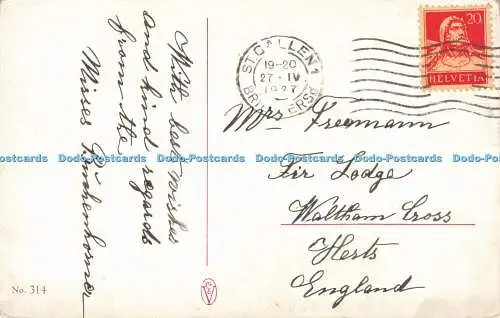 With best wishes
and kind regards
from the
Misses
ST. GALLEN 1
19-20
27-IV
1927
20
HELVETIA
Mrs Freemann
Fir Lodge
Waltham Cross
Herts
England
No. 314
Dodo-Postcards Dodo-Postcards Dodo-Postcards Dodo-Postcards Dodo-Postcards Dodo-Postcards Dodo-Postcards Dodo-Postcards